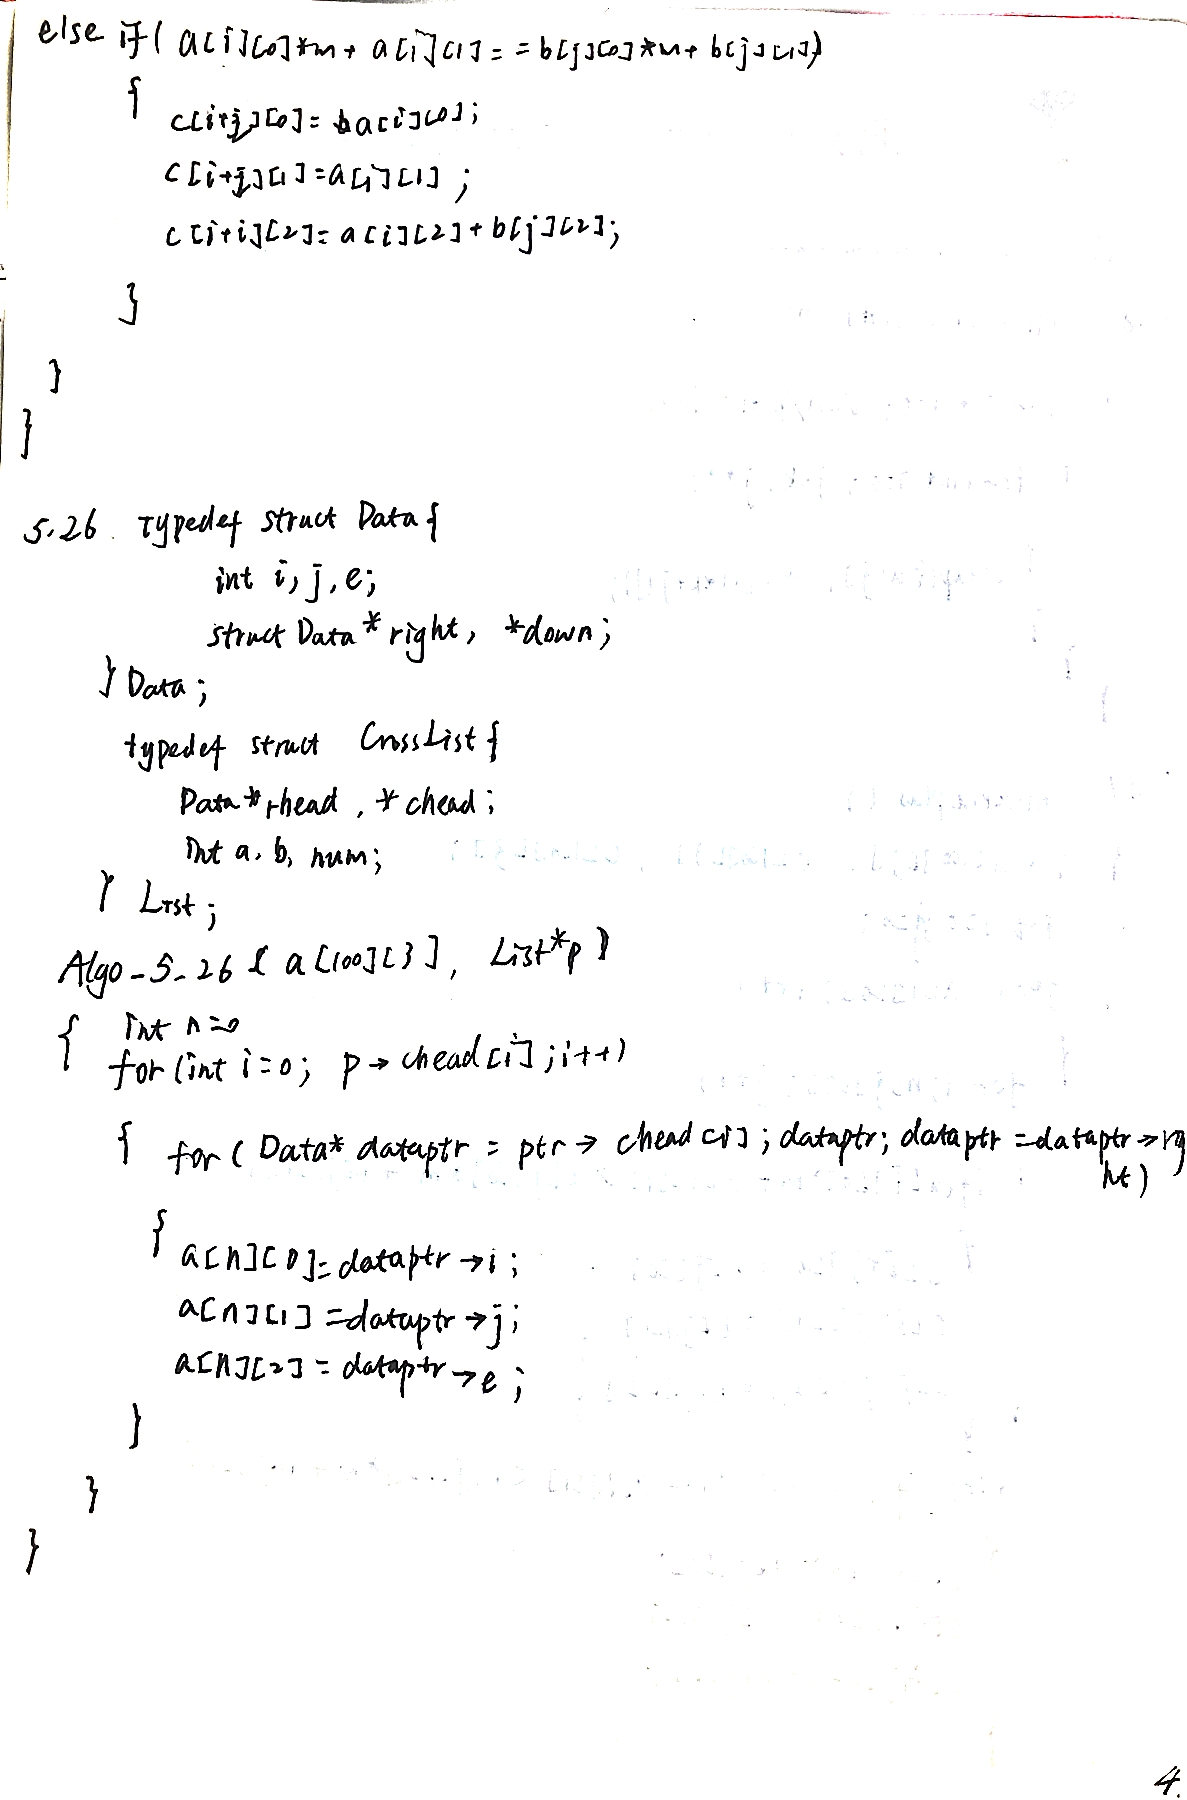 else if( a[i][0]*m+ a[i][1]==b[j][0]*m+ b[j][1])
{
c[i+j][0]= a[i][0];
c[i+j][1]=a[i][1];
c[i+i][2]= a[i][2]+b[j][2];
}
}
}
5.26. Typedef struct Data{
int i, j, e;
struct Data* right, *down;
} Data;
typedef struct CrossList{
Data *rhead, *chead;
int a, b, num;
} List;
Algo-5-26 ( a[100][3], List*p )
{ int n=0
for (int i=0; p→chead[i]; i++)
{ for ( Data* dataptr = ptr→ chead[i]; dataptr; dataptr=dataptr→rig
ht)
{ a[n][0]=dataptr→i;
a[n][1]=dataptr→j;
a[n][2]=dataptr→e;
}
}
}
4.